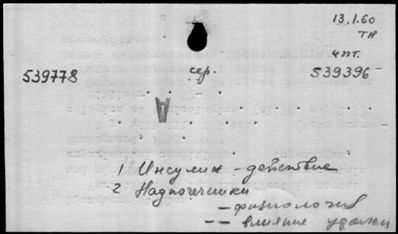 13.1.60
тн
чпт.
539778 сер. 539396
A
1 Инсулин - действие
2 Надпочечники
— физиология
— — влияние удален